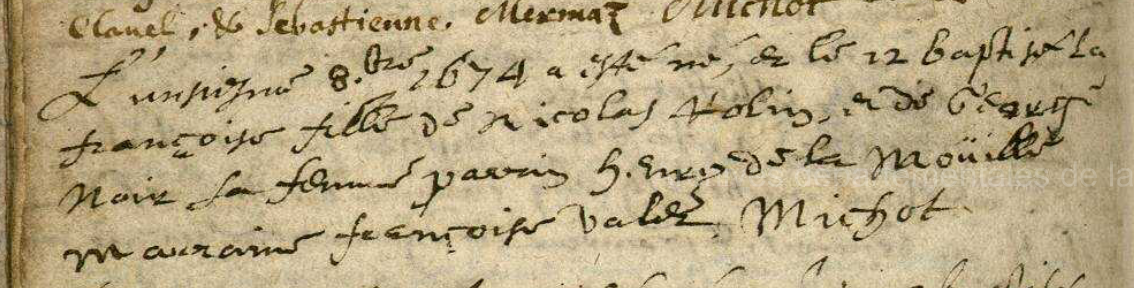 Clauel, & Sebastienne. Mermaz Michot
L'unsiesme 8.bre 1674 a esté né, et le 12 baptisé La
françoise fille de Nicolas Rolin, et de George
Noir sa femme parrin henry de la Moüille
marraine françoise Valet Michot